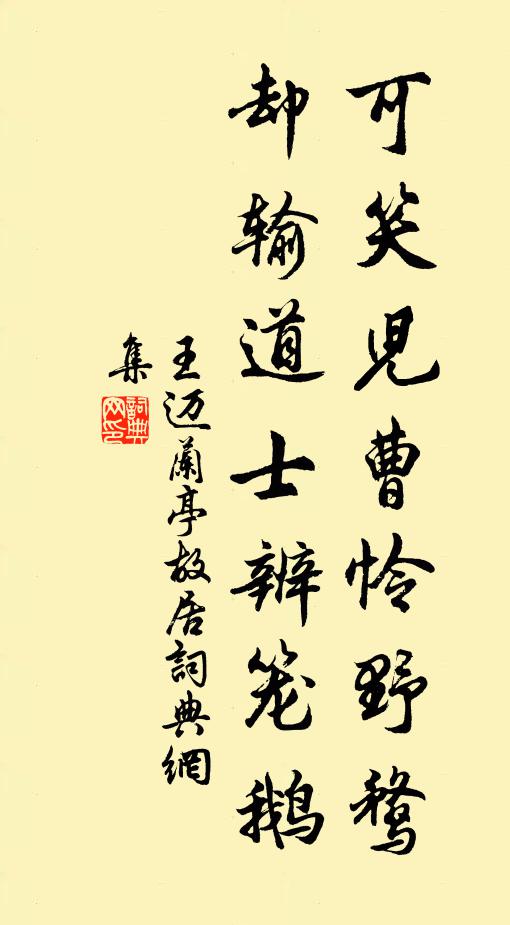 可笑児曹怜野鶩
却输道士辨笼鹅
王迈蘭亭故居詞典網
集
詞典网印